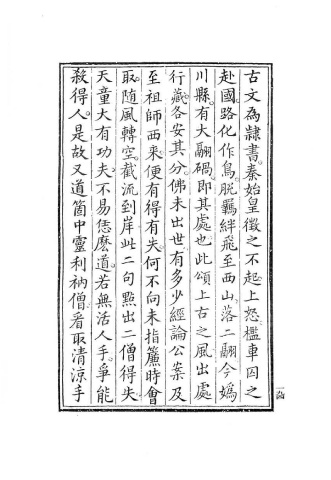 古文為隷書秦始皇徵之不起上怒檻車囚之
赴國路化作鳥脱羈絆飛至西山落二翮今媯
川縣有大翮碢即其處也此頌上古之風出處
行藏各安其分佛未出世有多少經論公案及
至祖師西來便有得有失何不向未指簾時會
取隨風轉空截流到岸此二句點出二僧得失
天童大有功夫不易恁麽道若無活人手爭能
殺得人是故又道箇中靈利衲僧看取清涼手